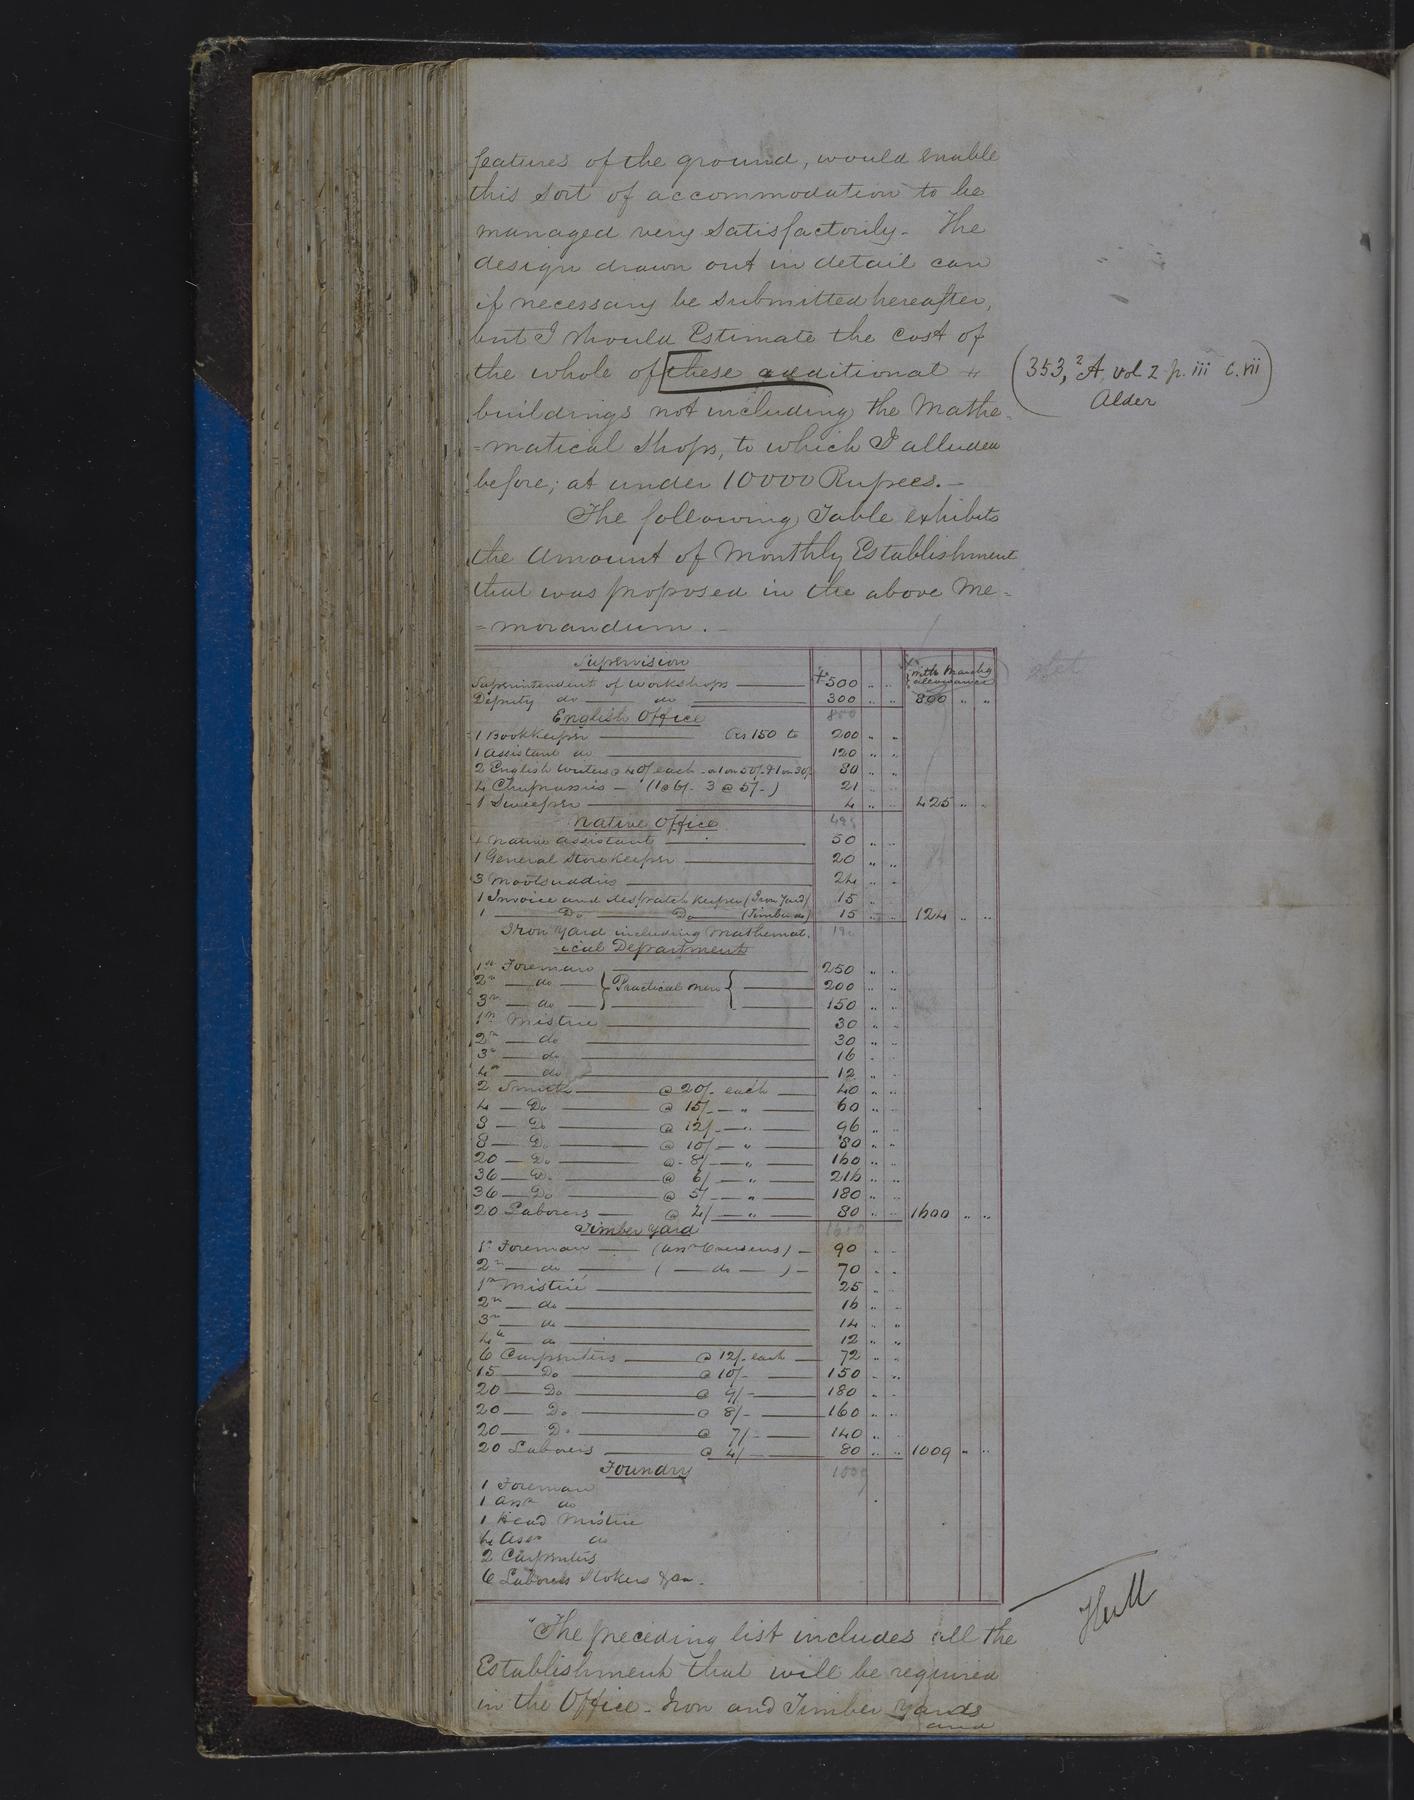 features of the ground, would enable
this sort of accommodation to be
managed very satisfactorily - The
design drawn out in detail can
if necessary be submitted hereafter,
but I should Estimate the cost of
the whole of these additional
buildings not including the Mathe-
=matical Shops, to which I alluded
before; at under 10000 Rupees. -
(353, ²A, vol. 2 p. iii c. vii)
Alder
The following Table exhibits
the Amount of Monthly Establishment
that was proposed in the above Me=
=morandum. -
Supervision
with
allowance
Superintendent of Workshops 500 " "
Deputy do do 300 " " 800 " "
800
English Office
1 Bookkeeper Rs 150 to 200 " "
1 Assistant do 120 " "
2 English writers @ 40/ each - or 1 on 50/ & 1 on 30/- 80 " "
4 Chuprassies - (1 @ 6/- 3 @ 5/-) 21 " "
1 Sweeper 4 " " 425 " "
Native Office
4 Native Assistant 50 " "
1 General Storekeeper 20 " "
3 Mootsuddies 24 " "
1 Invoice and despatch keeper (Iron Yard) 15 "
1 Do Do (Timber do) 15 " " 124 " "
Iron Yard including Mathemat.
-ical Department
1st Foreman 250 " "
2nd do } Practical Men { 200 " "
3rd do 150 " "
1st Mistrie 30 " "
2nd do 30 " "
3rd do 16 " "
4th do 12 " "
2 Smiths @ 20/- each 40 " "
4 Do @ 15/- " 60 " "
8 Do @ 12/- " 96 " "
8 Do @ 10/- " 80 " "
20 Do @ 8/ " 160 " "
36 Do @ 6/ " 216 " "
36 Do @ 5/ " 180 " "
20 Laborers @ 4/ " 80 " " 1600 " "
1600
Timber Yard
1st Foreman (Asst Overseers) - 90 " "
2nd do ( do ) - 70 " "
1st Mistrie 25 " "
2nd do 16 " "
3rd do 14 " "
4th do 12 " "
6 Carpenters @ 12/- each 72 " "
15 Do @ 10/- 150 " "
20 Do @ 9/- 180 " "
20 Do @ 8/- 160 " "
20 Do @ 7/- 140 " "
20 Laborers @ 4/ 80 " " 1009 " "
1009
Foundry
1 Foreman
1 Asst do
1 Head Mistrie
4 Asst do
2 Carpenters
6 Laborers Stokers &ca.
Hull
"The preceding list includes all the
Establishment that will be required
in the Office - Iron and Timber Yards
and